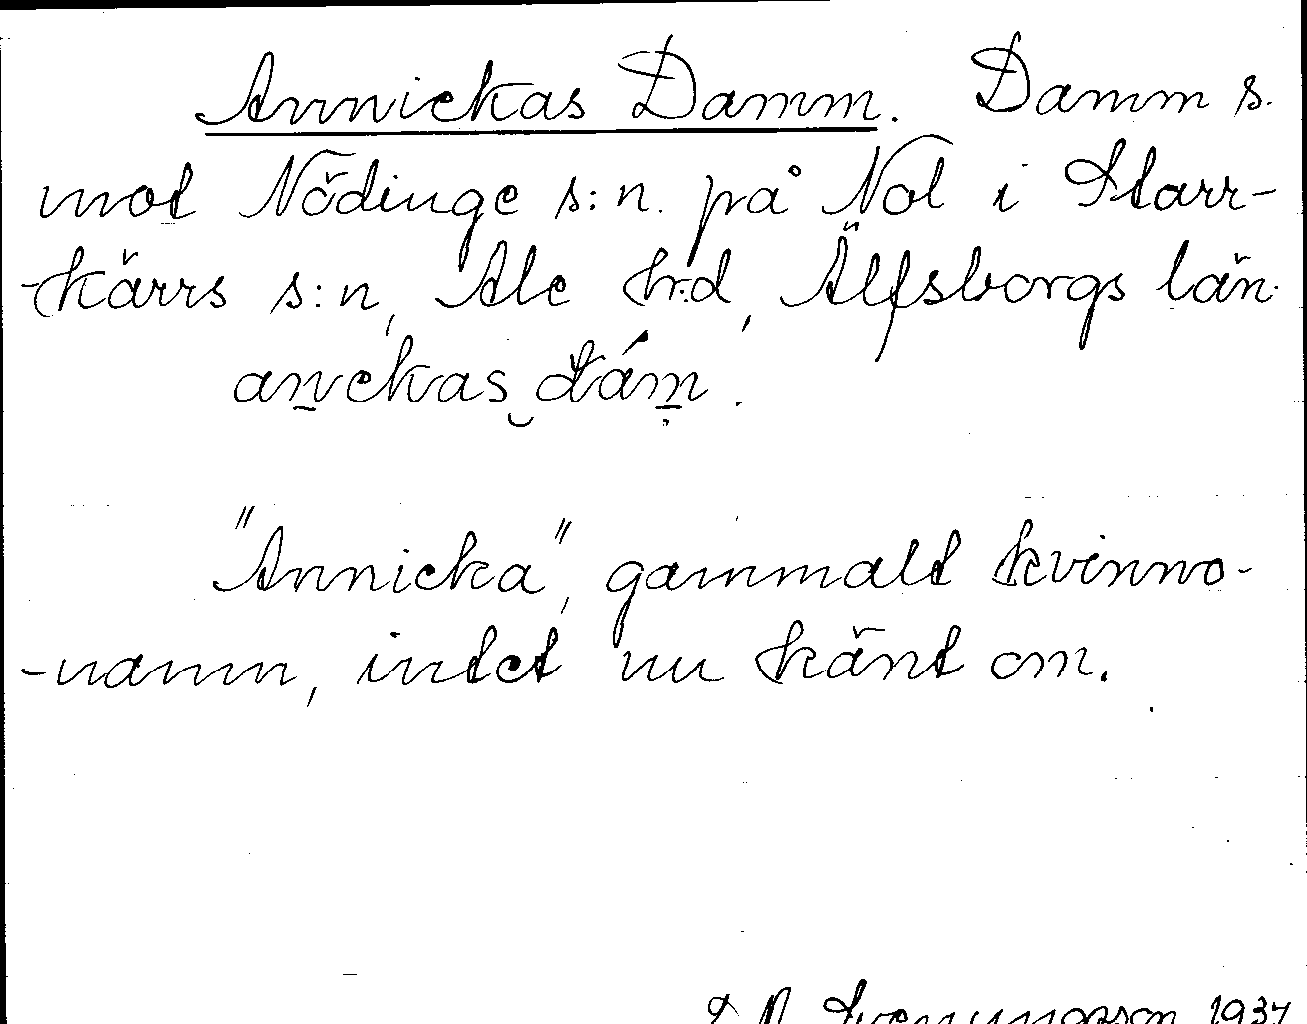 Annickas Damm. Damm s.
mot Nödinge s:n. på Nol i Starr-
-kärrs s:n, Ale h:d, Älfsborgs län.
anekas dám.
"Annicka", gammalt kvinno-
-namn, intet nu känt om.
1937